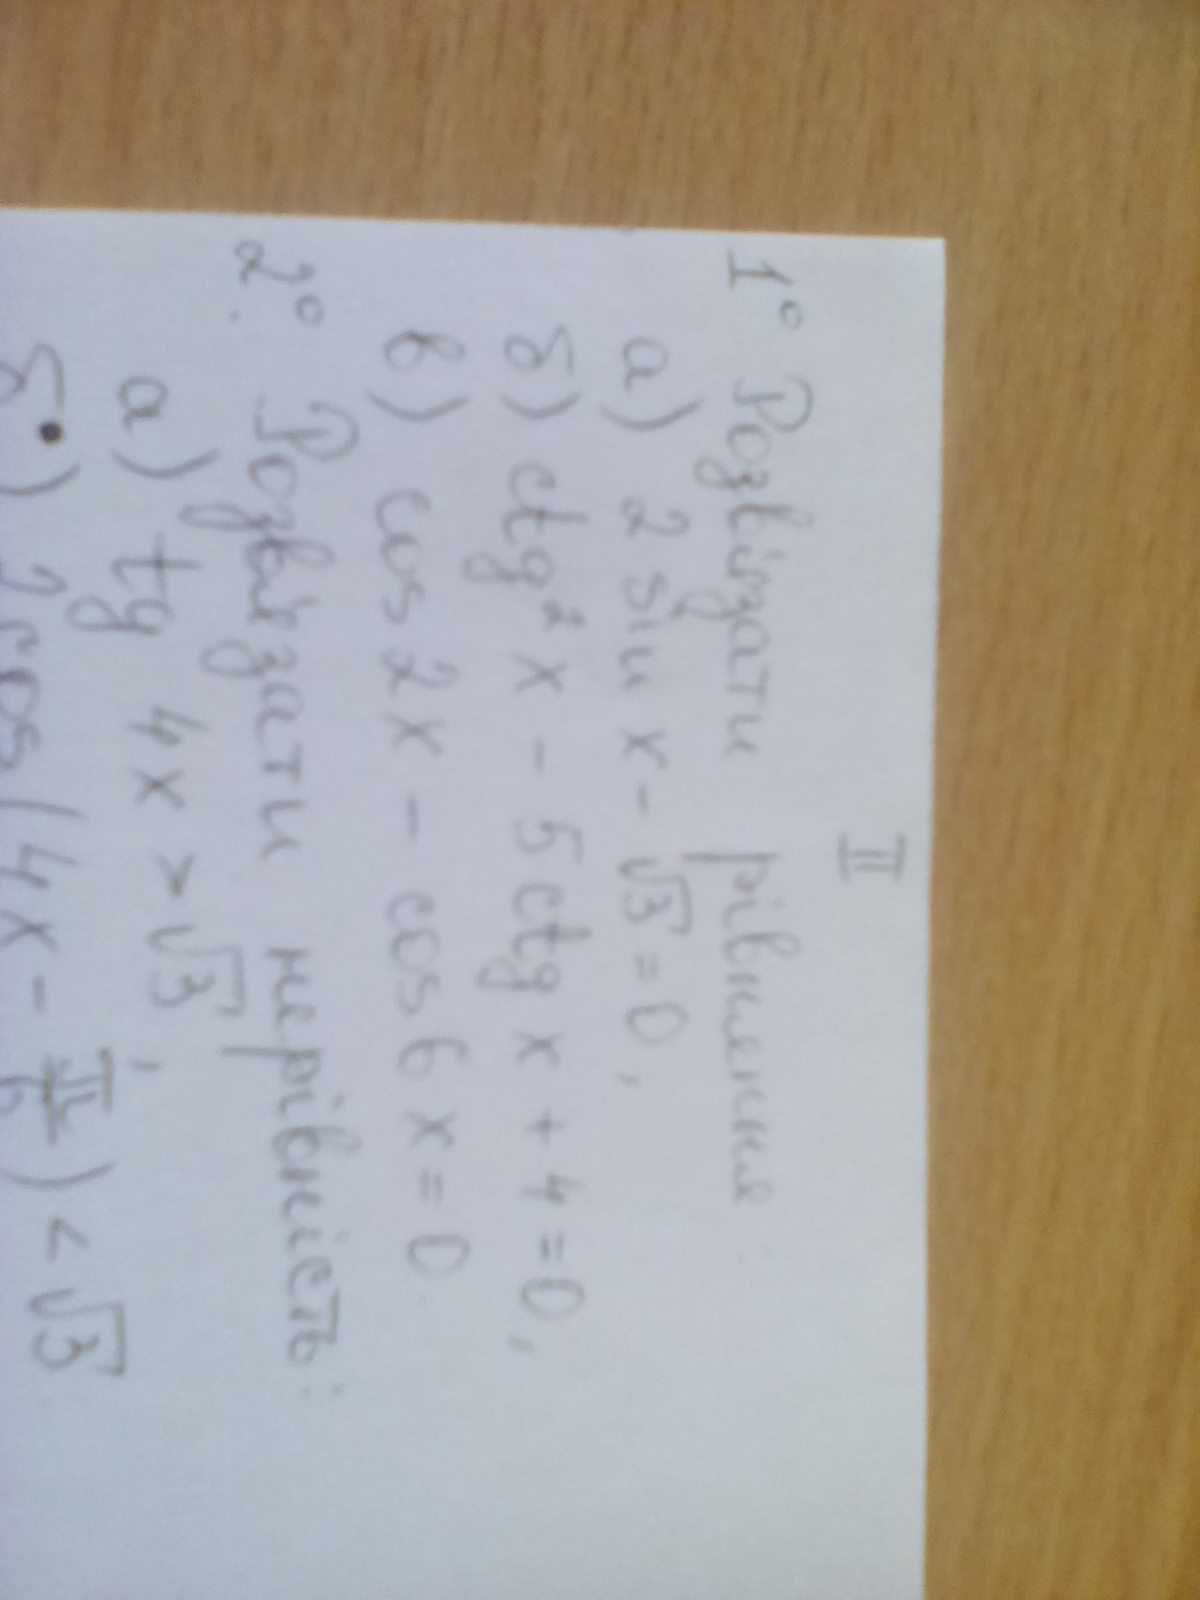 II
1° Розвʼязати рівняння:
а) 2 sin x - √3 = 0,
б) ctg² x - 5 ctg x + 4 = 0,
в) cos 2x - cos 6x = 0
2°. Розвʼязати нерівність:
а) tg 4x > √3,
б•) 2 cos (4x - π/6) < √3